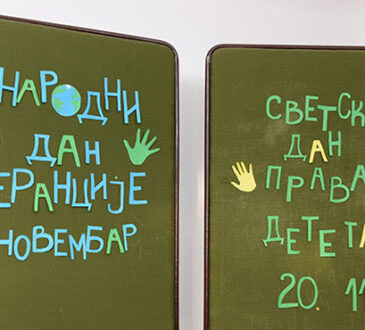 НАРОДНИ
ДАН
ЕРАНЦИЈЕ
НОВЕМБАР
СВЕТСК
ДАН
ПРАВА
ДЕТЕТА
20. 11